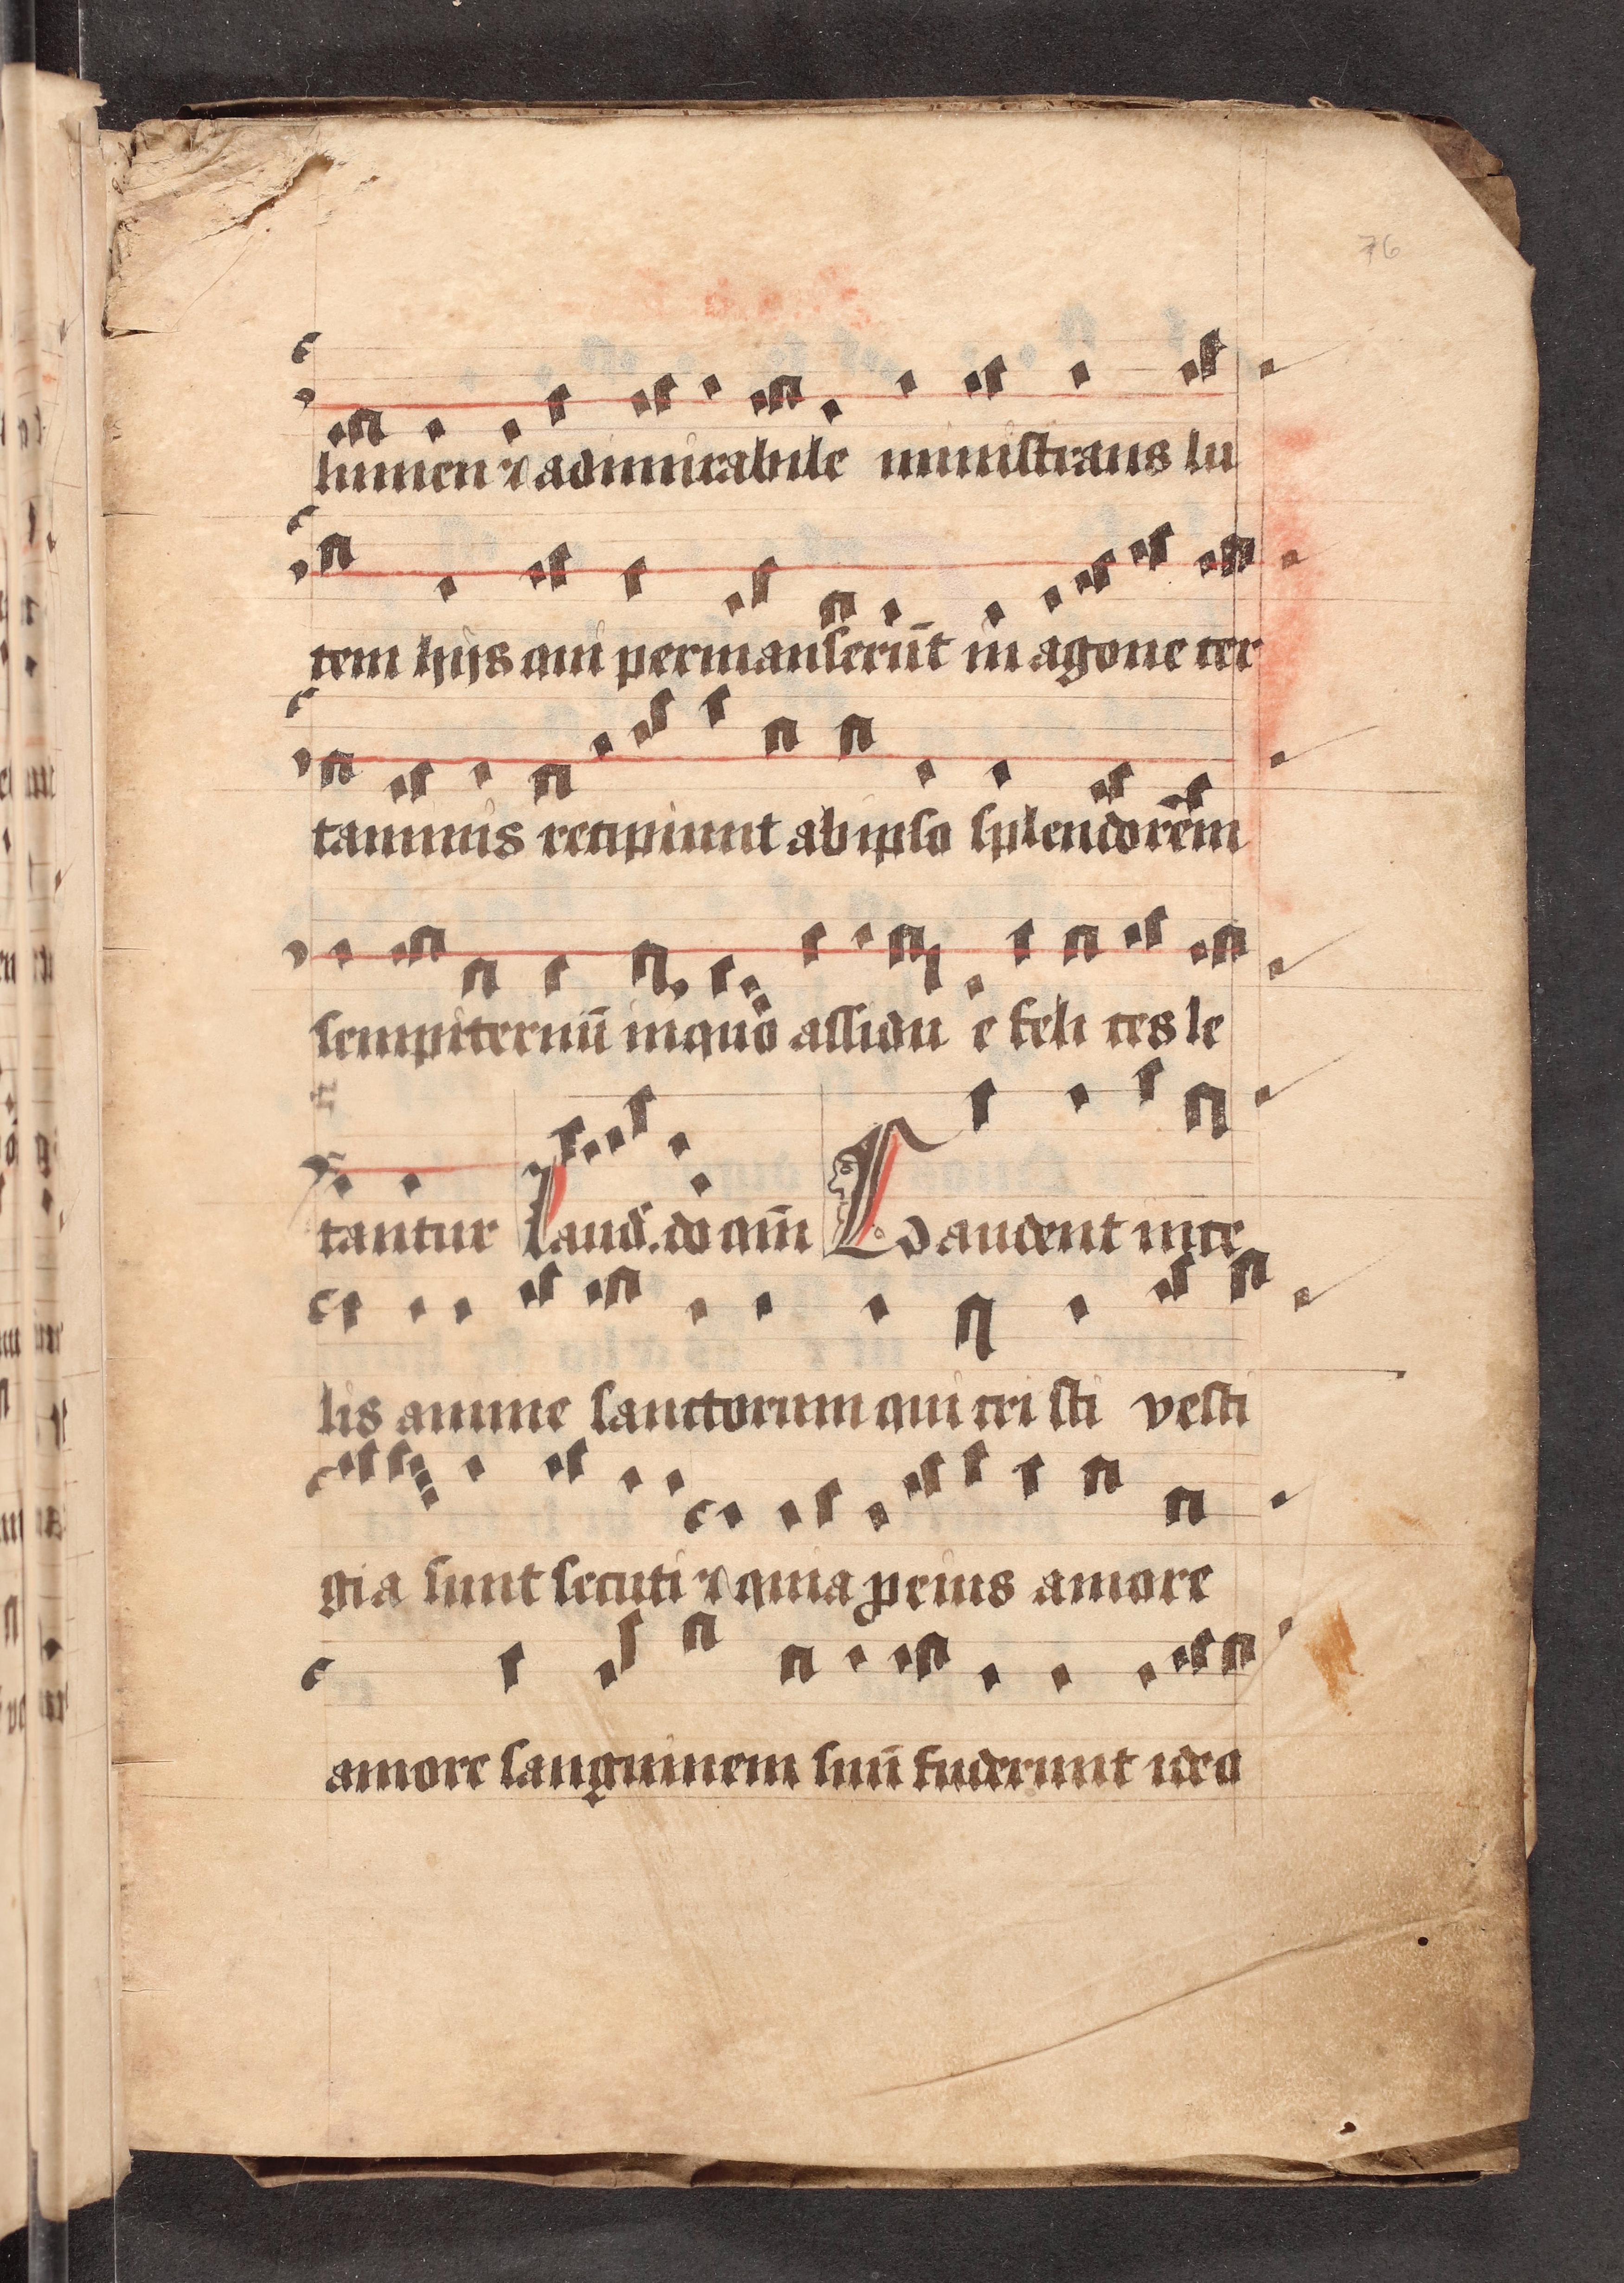 76
lumen ⁊ admirabile ministrans lu
cem hijs qui permanserūt in agone cer
taminis recipiunt ab ipso splendorem
sempiternū in quo assidu e feli ces le
tantur Laud. do qm̄ Gaudent in ce
lis anime sanctorum qui cri sti vesti
gia sunt secuti ⁊ quia ꝓ eius amore
amore sanguinem suū fuderunt ideo